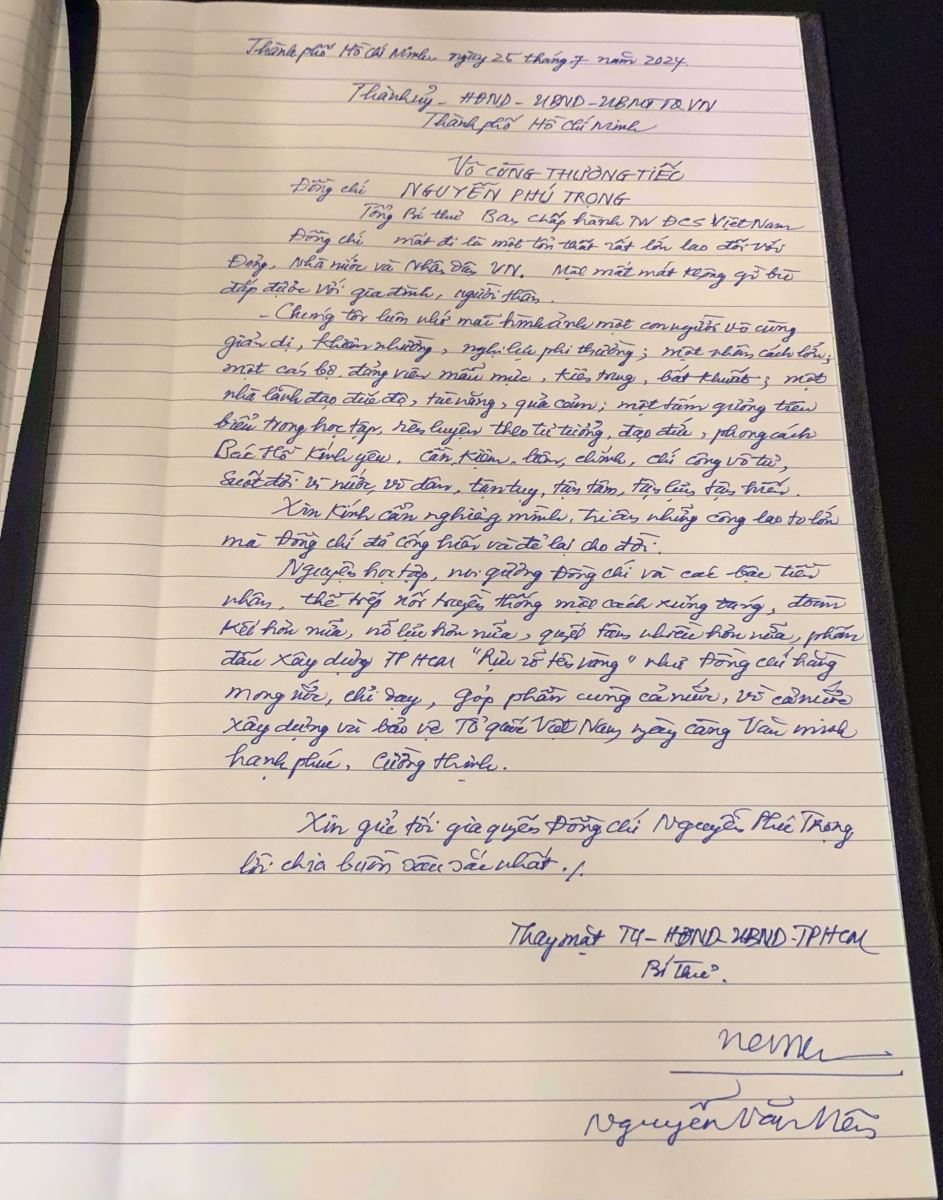 Thành phố Hồ Chí Minh, ngày 25 tháng 7 năm 2024
Thành ủy - HĐND - UBND - UBMTTQVN
Thành phố Hồ Chí Minh
Vô CÙNG THƯƠNG TIẾC
Đồng chí NGUYỄN PHÚ TRỌNG
Tổng Bí thư Ban chấp hành TW ĐCS Việt Nam
Đồng chí mất đi là một tổn thất rất lớn lao đối với
Đảng, Nhà nước và Nhân dân VN. Một mất mát không gì bù
đắp được với gia đình, người thân.
- Chúng tôi luôn nhớ mãi hình ảnh một con người vô cùng
giản dị, khiêm nhường, nghị lực phi thường; một nhân cách lớn;
một cán bộ, đảng viên mẫu mực, kiên trung, bất khuất; một
nhà lãnh đạo đức độ, tài năng, quả cảm; một tấm gương tiêu
biểu trong học tập, rèn luyện theo tư tưởng, đạo đức, phong cách
Bác Hồ kính yêu, cần, kiệm, liêm, chính, chí công vô tư,
suốt đời vì nước, vì dân, tận tụy, tận tâm, tận lực, tận hiến.
Xin kính cẩn nghiêng mình, tri ân những công lao to lớn
mà Đồng chí đã cống hiến và để lại cho đời.
Nguyện học tập, noi gương Đồng chí và các bậc tiền
nhân, thế tiếp nối truyền thống một cách xứng đáng, đoàn
kết hơn nữa, nỗ lực hơn nữa, quyết tâm nhiều hơn nữa, phấn
đấu xây dựng TPHCM "Rực rỡ tên vàng" như Đồng chí hằng
mong ước, chỉ dạy, góp phần cùng cả nước, vì cả nước
xây dựng và bảo vệ Tổ quốc Việt Nam ngày càng Văn minh
hạnh phúc, Cường thịnh.
Xin gửi tới gia quyến Đồng chí Nguyễn Phú Trọng
lời chia buồn sâu sắc nhất./.
Thay mặt TU - HĐND - UBND - TPHCM
Bí thư.
Nguyễn Văn Nên